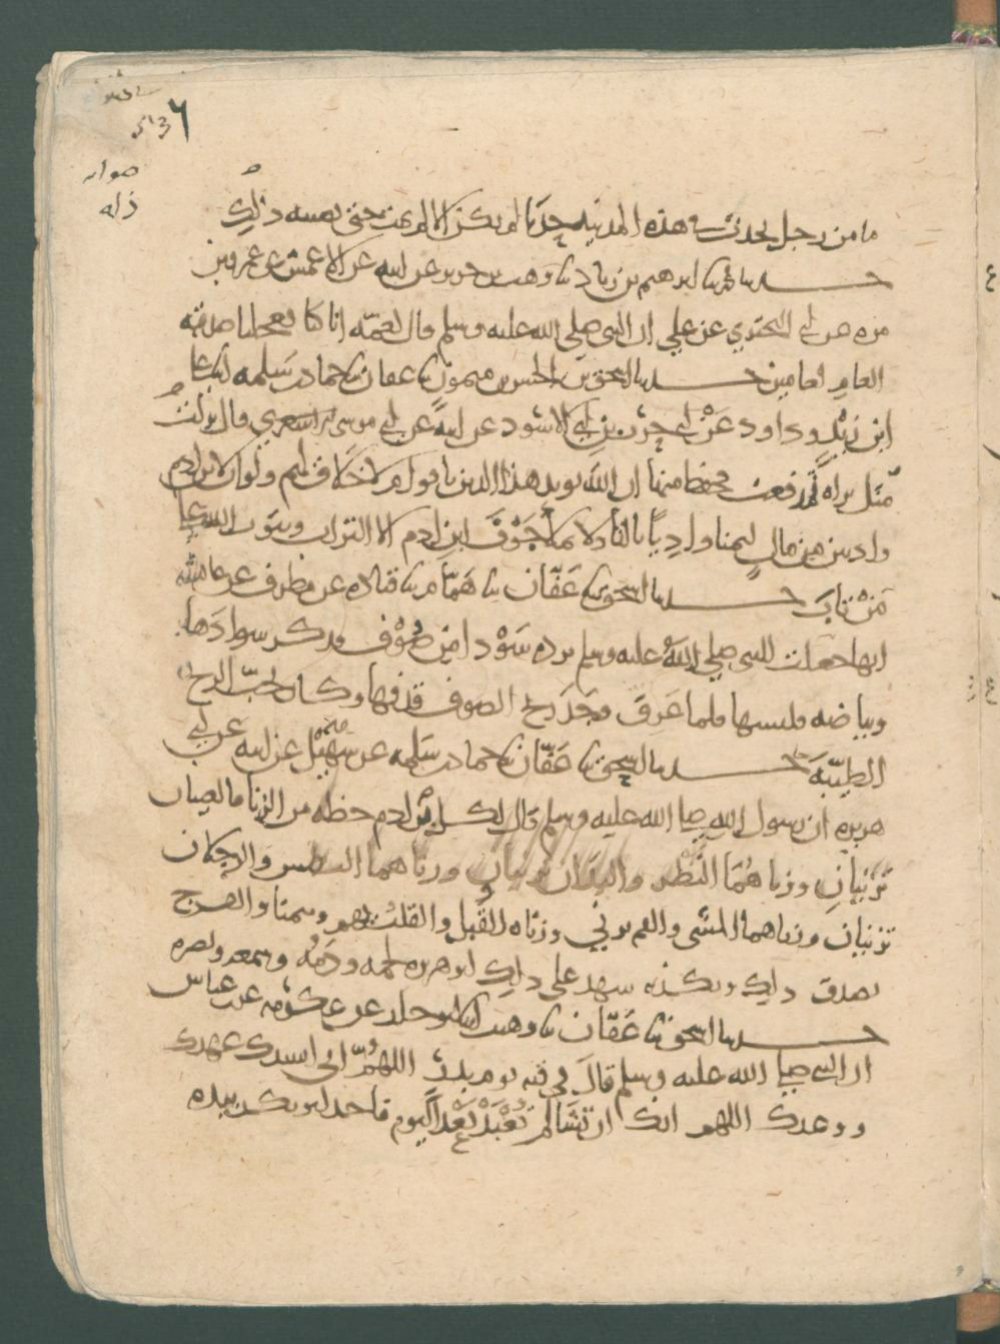 ما من رجل يحدث في هذه المدينة حدثا لم يكن الا لم يمت حتى يصيبه ذلك
حدثنا محمد بن ابرهيم بن زياد نا وهب بن جرير عن ابيه عن الاعمش عن عمرو بن
مره عن ابي البختري عن علي ان النبي صلى الله عليه وسلم قال لعمه انا كنا تعجلنا صدقة
العام لعامين حدثنا اسحق بن الحسن بن ميمون نا عفان نا حماد بن سلمه انا علي
ابن زيد وداود عن ابي حرب بن ابي الاسود عن ابيه عن ابي موسى الاشعري قال نزلت
مثل براه ثم رفعت فحفظ منها ان الله يويد هذا الدين باقوام لا خلاق لهم ولو ان لابن ادم
واديين من مال لتمنا واديا ثالثا ولا يملا جوف ابن ادم الا التراب ويتوب الله على
من تاب حدثنا اسحق نا عفان نا همام نا قتاده عن مطرف عن عائشه
انها جعلت للنبي صلى الله عليه وسلم برده سودا من صوف فذكر سوادها
وبياضه فلبسها فلما عرق وجد ريح الصوف قذفها وكان يحب الريح
الطيبه حدثنا اسحق نا عفان نا حماد بن سلمه عن سهيل عن ابيه عن ابي
هريره ان رسول الله صلى الله عليه وسلم قال لكل بني ادم حظه من الزنا فالعينان
تزنيان وزناهما النظر واليدان تزنيان وزناهما البطش والرجلان
تزنيان وزناهما المشى والفم يزني وزناه القبل والقلب يهوى ويتمنا والفرج
يصدق ذلك ويكذبه شهد على ذلك ابو هريره لحمه ودمه وسمعه وبصره
حدثنا اسحق نا عفان نا وهيب نا خالد عن عكرمه عن ابن عباس
ان النبي صلى الله عليه وسلم قال في قبه يوم بدر اللهم اني انشدك عهدك
ووعدك اللهم انك ان تشا لم تعبد بعد اليوم فاخذ ابو بكر بيده
صوابه
ذله